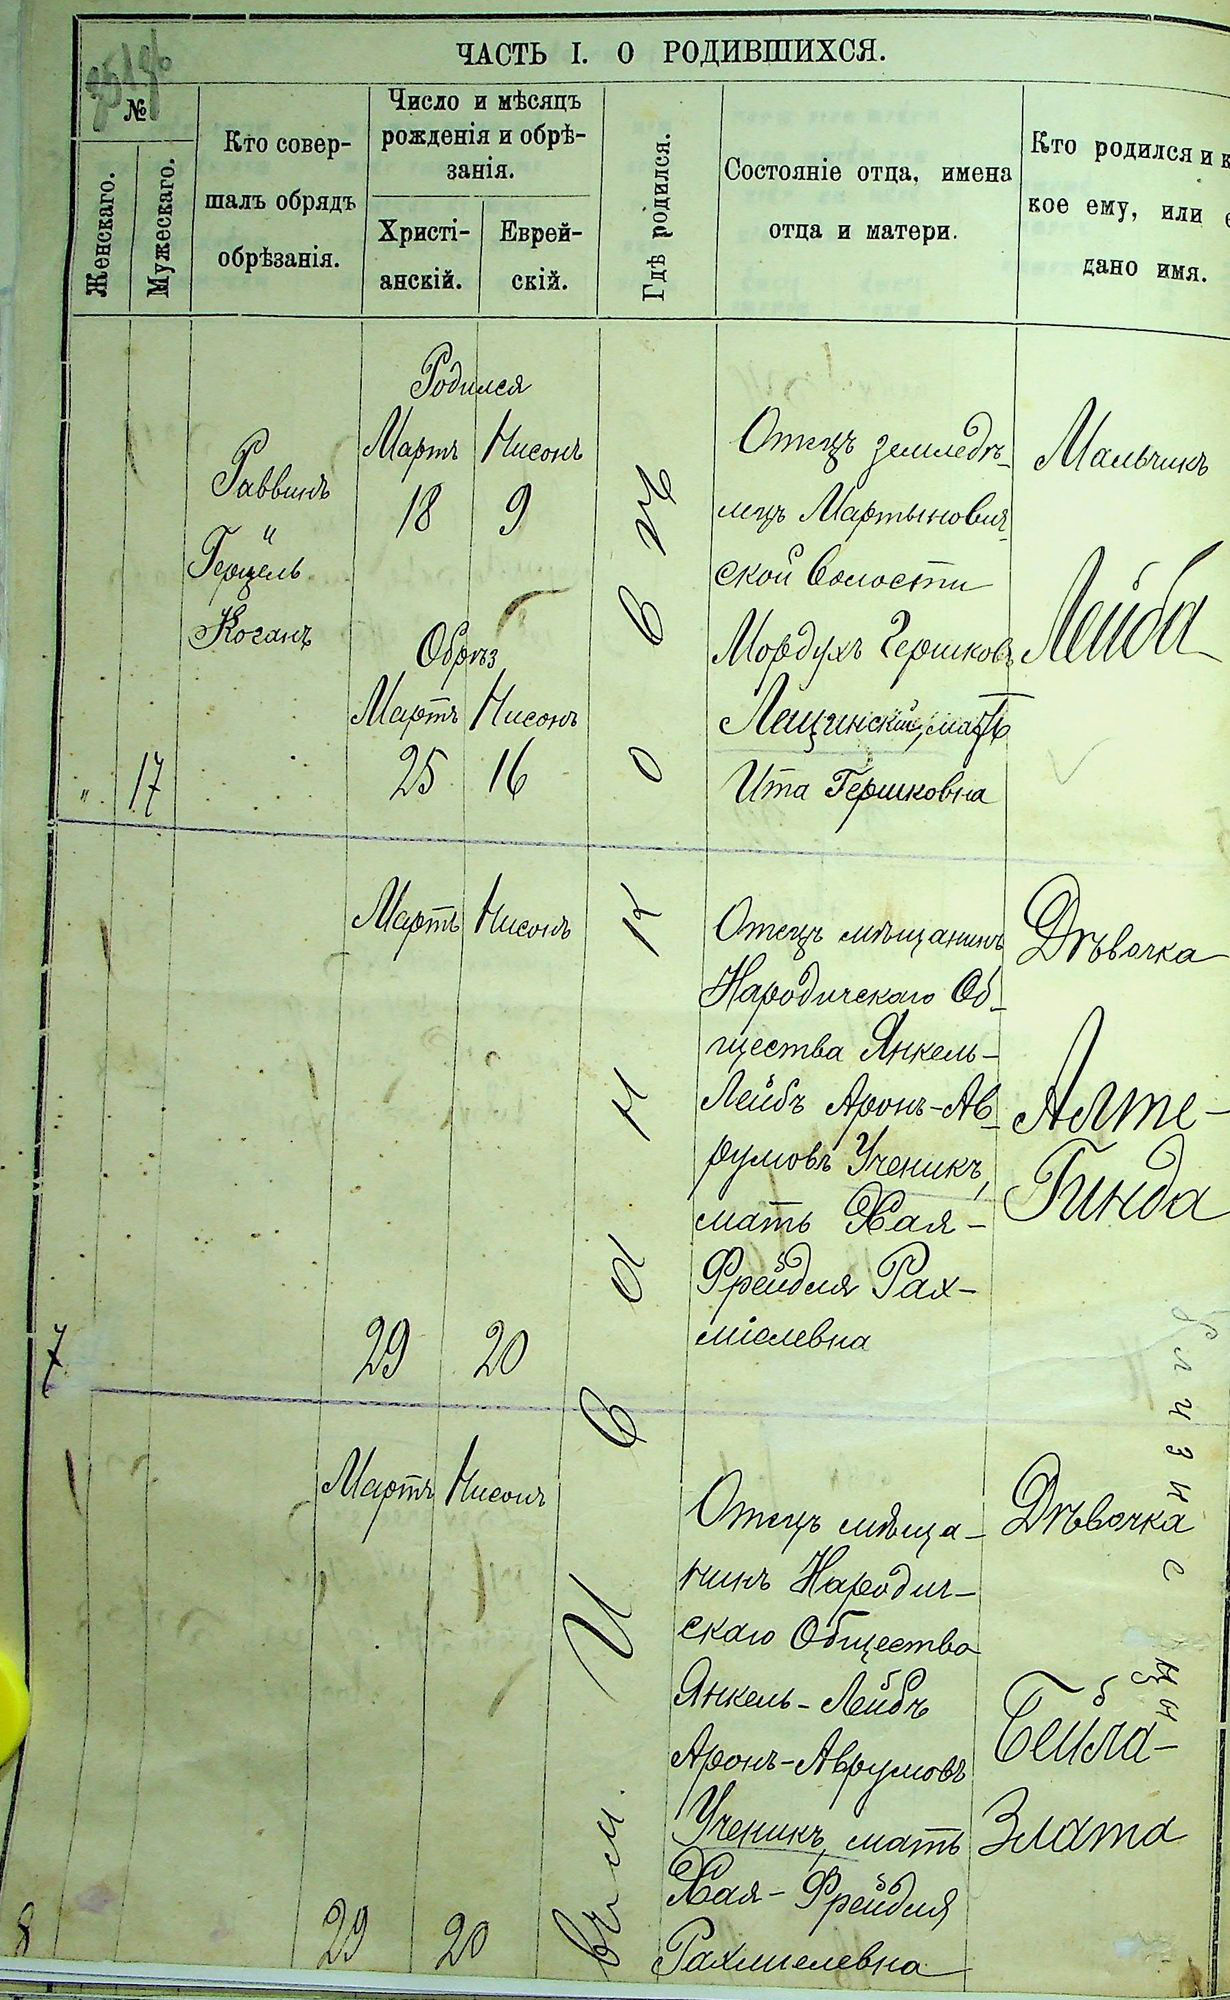 ЧАСТЬ I. О РОДИВШИХСЯ.
№
Женскаго.
Мужескаго.
Кто совер-
шалъ обрядъ
обрѣзанія.
Число и мѣсяцъ
рожденія и обрѣ-
занія.
Христі-
анскій.
Еврей-
скій.
Гдѣ родился.
Состояніе отца, имена
отца и матери.
Кто родился и к
кое ему, или е
дано имя.
"
17
Раввинъ
Герцель
Коганъ
Родился
Мартъ Нисонъ
18 9
Обрѣз
Мартъ Нисонъ
25 16
Отецъ земледѣ-
лецъ Мартынович-
ской волости
Мордухъ Гершковъ
Лещинскій, мать
Ита Гершковна
Мальчикъ
Лейба
7
Мартъ Нисонъ
29 20
Отецъ мѣщанинъ
Народичскаго Об-
щества Янкель-
Лейбъ Аронъ-Ав-
румовъ Ученикъ,
мать Хая-
Фрейдля Рах-
міелевна
Дѣвочка
Алте-
Гинда
Близнецы
8
Мартъ Нисонъ
29 20
Отецъ мѣща-
нинъ Народич-
скаго Общества
Янкель-Лейбъ
Аронъ-Аврумовъ
Ученикъ, мать
Хая-Фрейдля
Рахмielевна
Дѣвочка
Бейла-
Злата